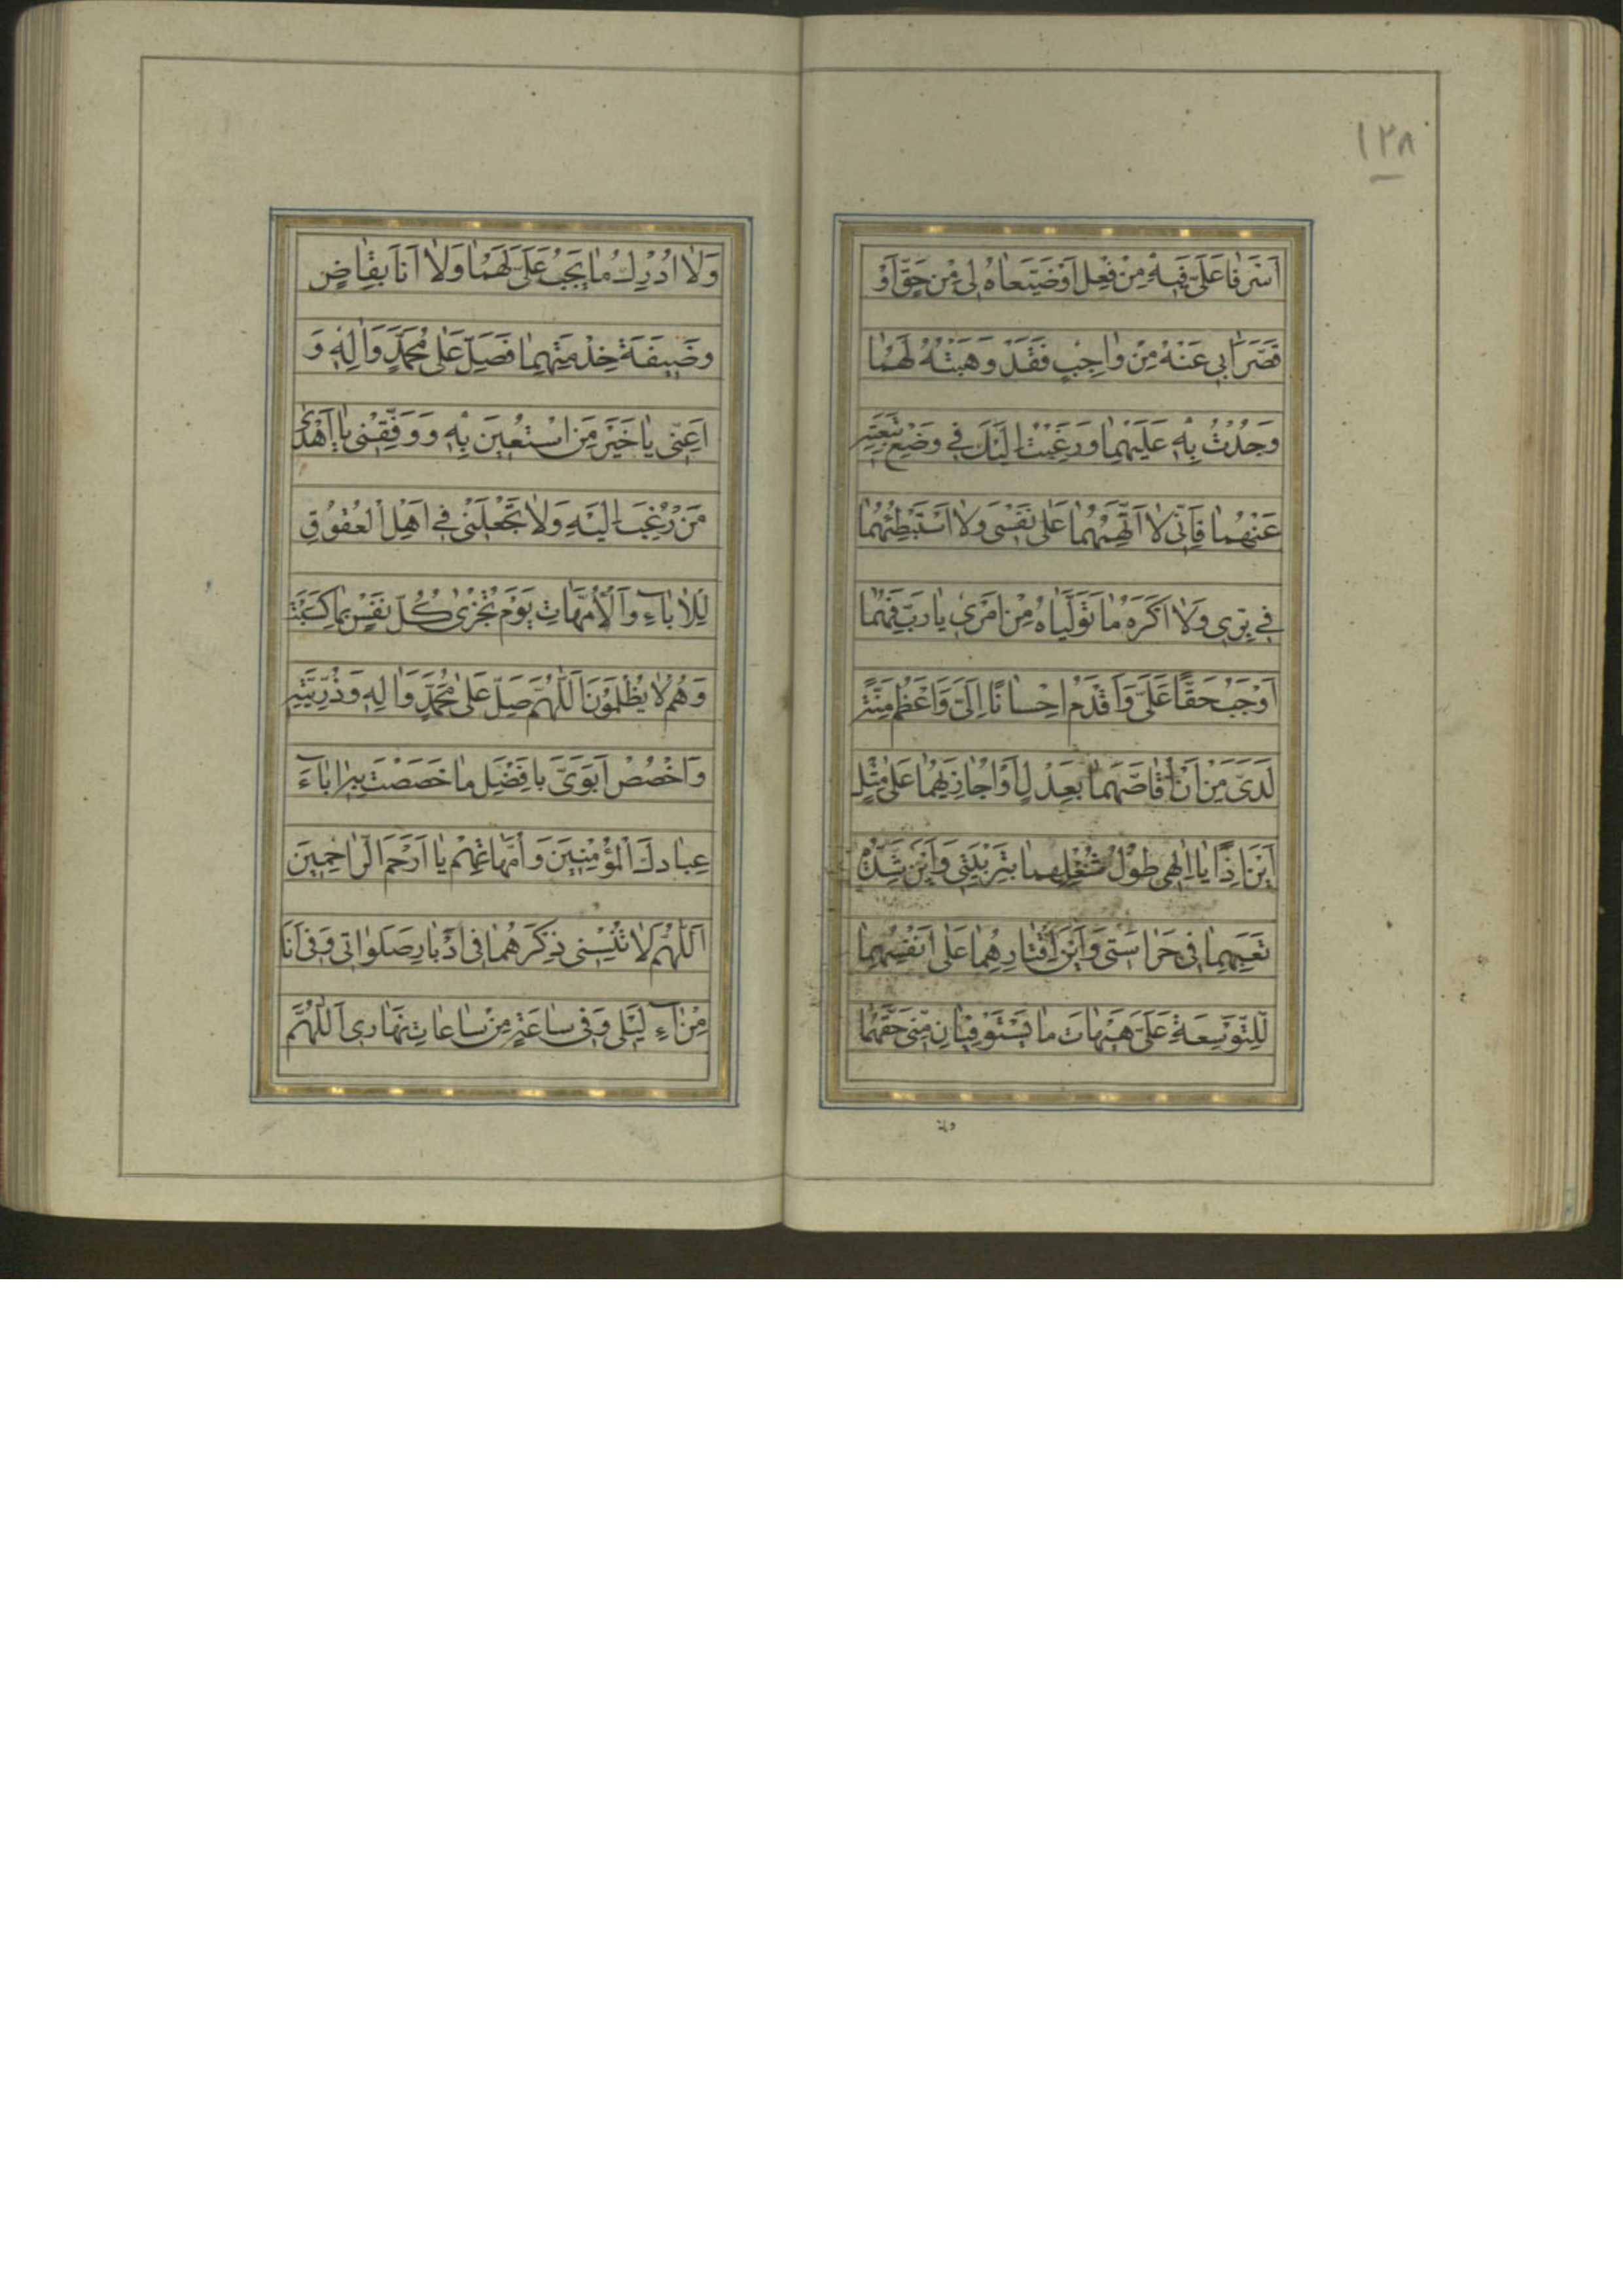 ١٢٨
اَسْرَفا عَلَیَّ فیهِ مِنْ فِعْل اَوْ ضَیَّعاهُ لی مِنْ حَقٍّ اَوْ
قَصَّرا بی عَنْهُ مِنْ واجِبٍ فَقَدْ وَهَبْتُهُ لَهُما
وَجُدْتُ بِهِ عَلَیْهِما وَرَغِبْتُ اِلَیْكَ فی وَضْعِ تَبِعَتِهِ
عَنْهُما فَاِنّی لا اَتَّهِمُهُما عَلی نَفْسی وَلا اَسْتَبْطِئُهُما
فی بِرّی وَلا اَكْرَهُ ما تَوَلَّیاهُ مِنْ اَمْری یا رَبِّ فَهُما
اَوْجَبُ حَقًّا عَلَیَّ وَاَقْدَمُ اِحْسانًا اِلَیَّ وَاَعْظَمُ مِنَّةً
لَدَیَّ مِنْ اَنْ اُقاصَّهُما بِعَدْلٍ اَوْ اُجازِیَهُما عَلی مِثْلٍ
اَیْنَ اِذًا یا اِلهی طُولُ شُغْلِهِما بِتَرْبِیَتی وَاَیْنَ شِدَّةُ
تَعَبِهِما فی حَراسَتی وَاَیْنَ اِقْتارُهِما عَلی اَنْفُسِهِما
لِلتَّوْسِعَةِ عَلَیَّ هَیْهاتَ ما یَسْتَوْفِیانِ مِنّی حَقَّهُما
ولا
وَلا اُدْرِكُ ما یَجِبُ عَلَیَّ لَهُما وَلا اَنَا بِقاضٍ
وَضیفَةَ خِدْمَتِهِما فَصَلِّ عَلی مُحَمَّدٍ وَالِهِ وَ
اَعِنّی یا خَیْرَ مَنِ اسْتُعینَ بِهِ وَوَفِّقْنی یا اَهْدی
مَنْ رُغِبَ اِلَیْهِ وَلا تَجْعَلْنی فی اَهْلِ الْعُقُوقِ
لِلْاباءِ وَالْاُمَّهاتِ یَوْمَ تُجْزی كُلُّ نَفْسٍ بِما كَسَبَتْ
وَهُمْ لا یُظْلَمُونَ اَللّهُمَّ صَلِّ عَلی مُحَمَّدٍ وَالِهِ وَذُرِّیَّتِهِ
وَاخْصُصْ اَبَوَیَّ بِاَفْضَلِ ما خَصَصْتَ بِهِ اباءَ
عِبادِكَ الْمُؤْمِنینَ وَاُمَّهاتِهِمْ یا اَرْحَمَ الرّاحِمینَ
اَللّهُمَّ لا تُنْسِنی ذِكْرَهُما فی اَدْبارِ صَلَواتی وَفی اَنَا
مِنْ اآءِ لَیْلی وَفی ساعَةٍ مِنْ ساعاتِ نَهاری اَللّهُمَّ